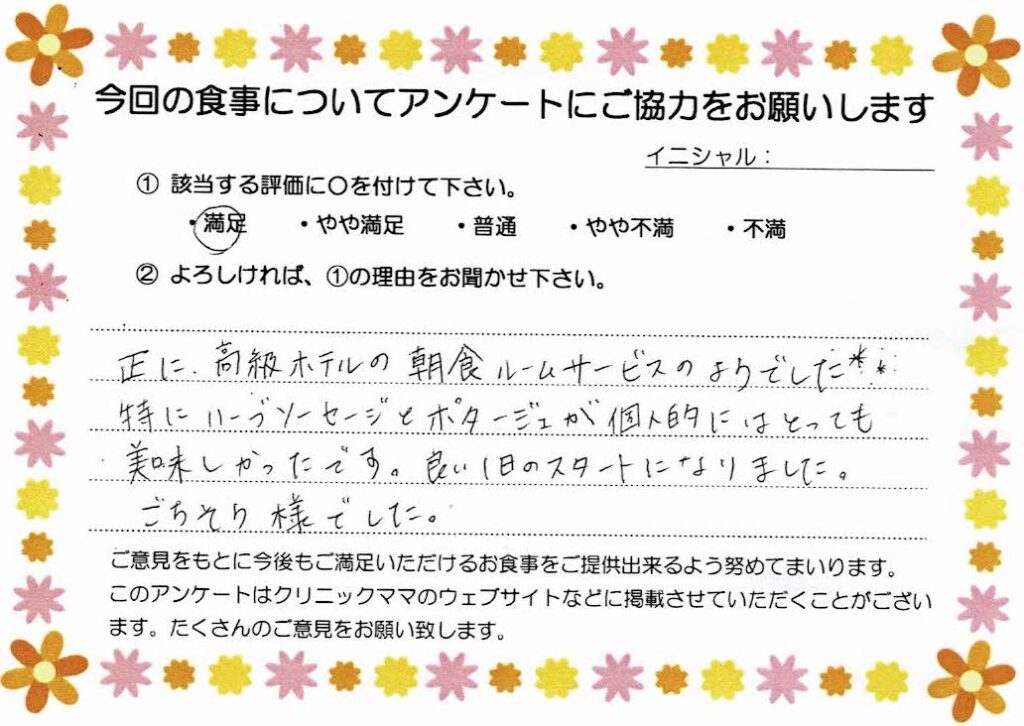 今回の食事についてアンケートにご協力をお願いします
イニシャル：
① 該当する評価に〇を付けて下さい。
・満足 ・やや満足 ・普通 ・やや不満 ・不満
② よろしければ、①の理由をお聞かせ下さい。
正に、高級ホテルの朝食ルームサービスのようでした
特にハーブソーセージとポタージュが個人的にはとっても
美味しかったです。良い1日のスタートになりました。
ごちそう様でした。
ご意見をもとに今後もご満足いただけるお食事をご提供出来るよう努めてまいります。
このアンケートはクリニックママのウェブサイトなどに掲載させていただくことがござい
ます。たくさんのご意見をお願い致します。